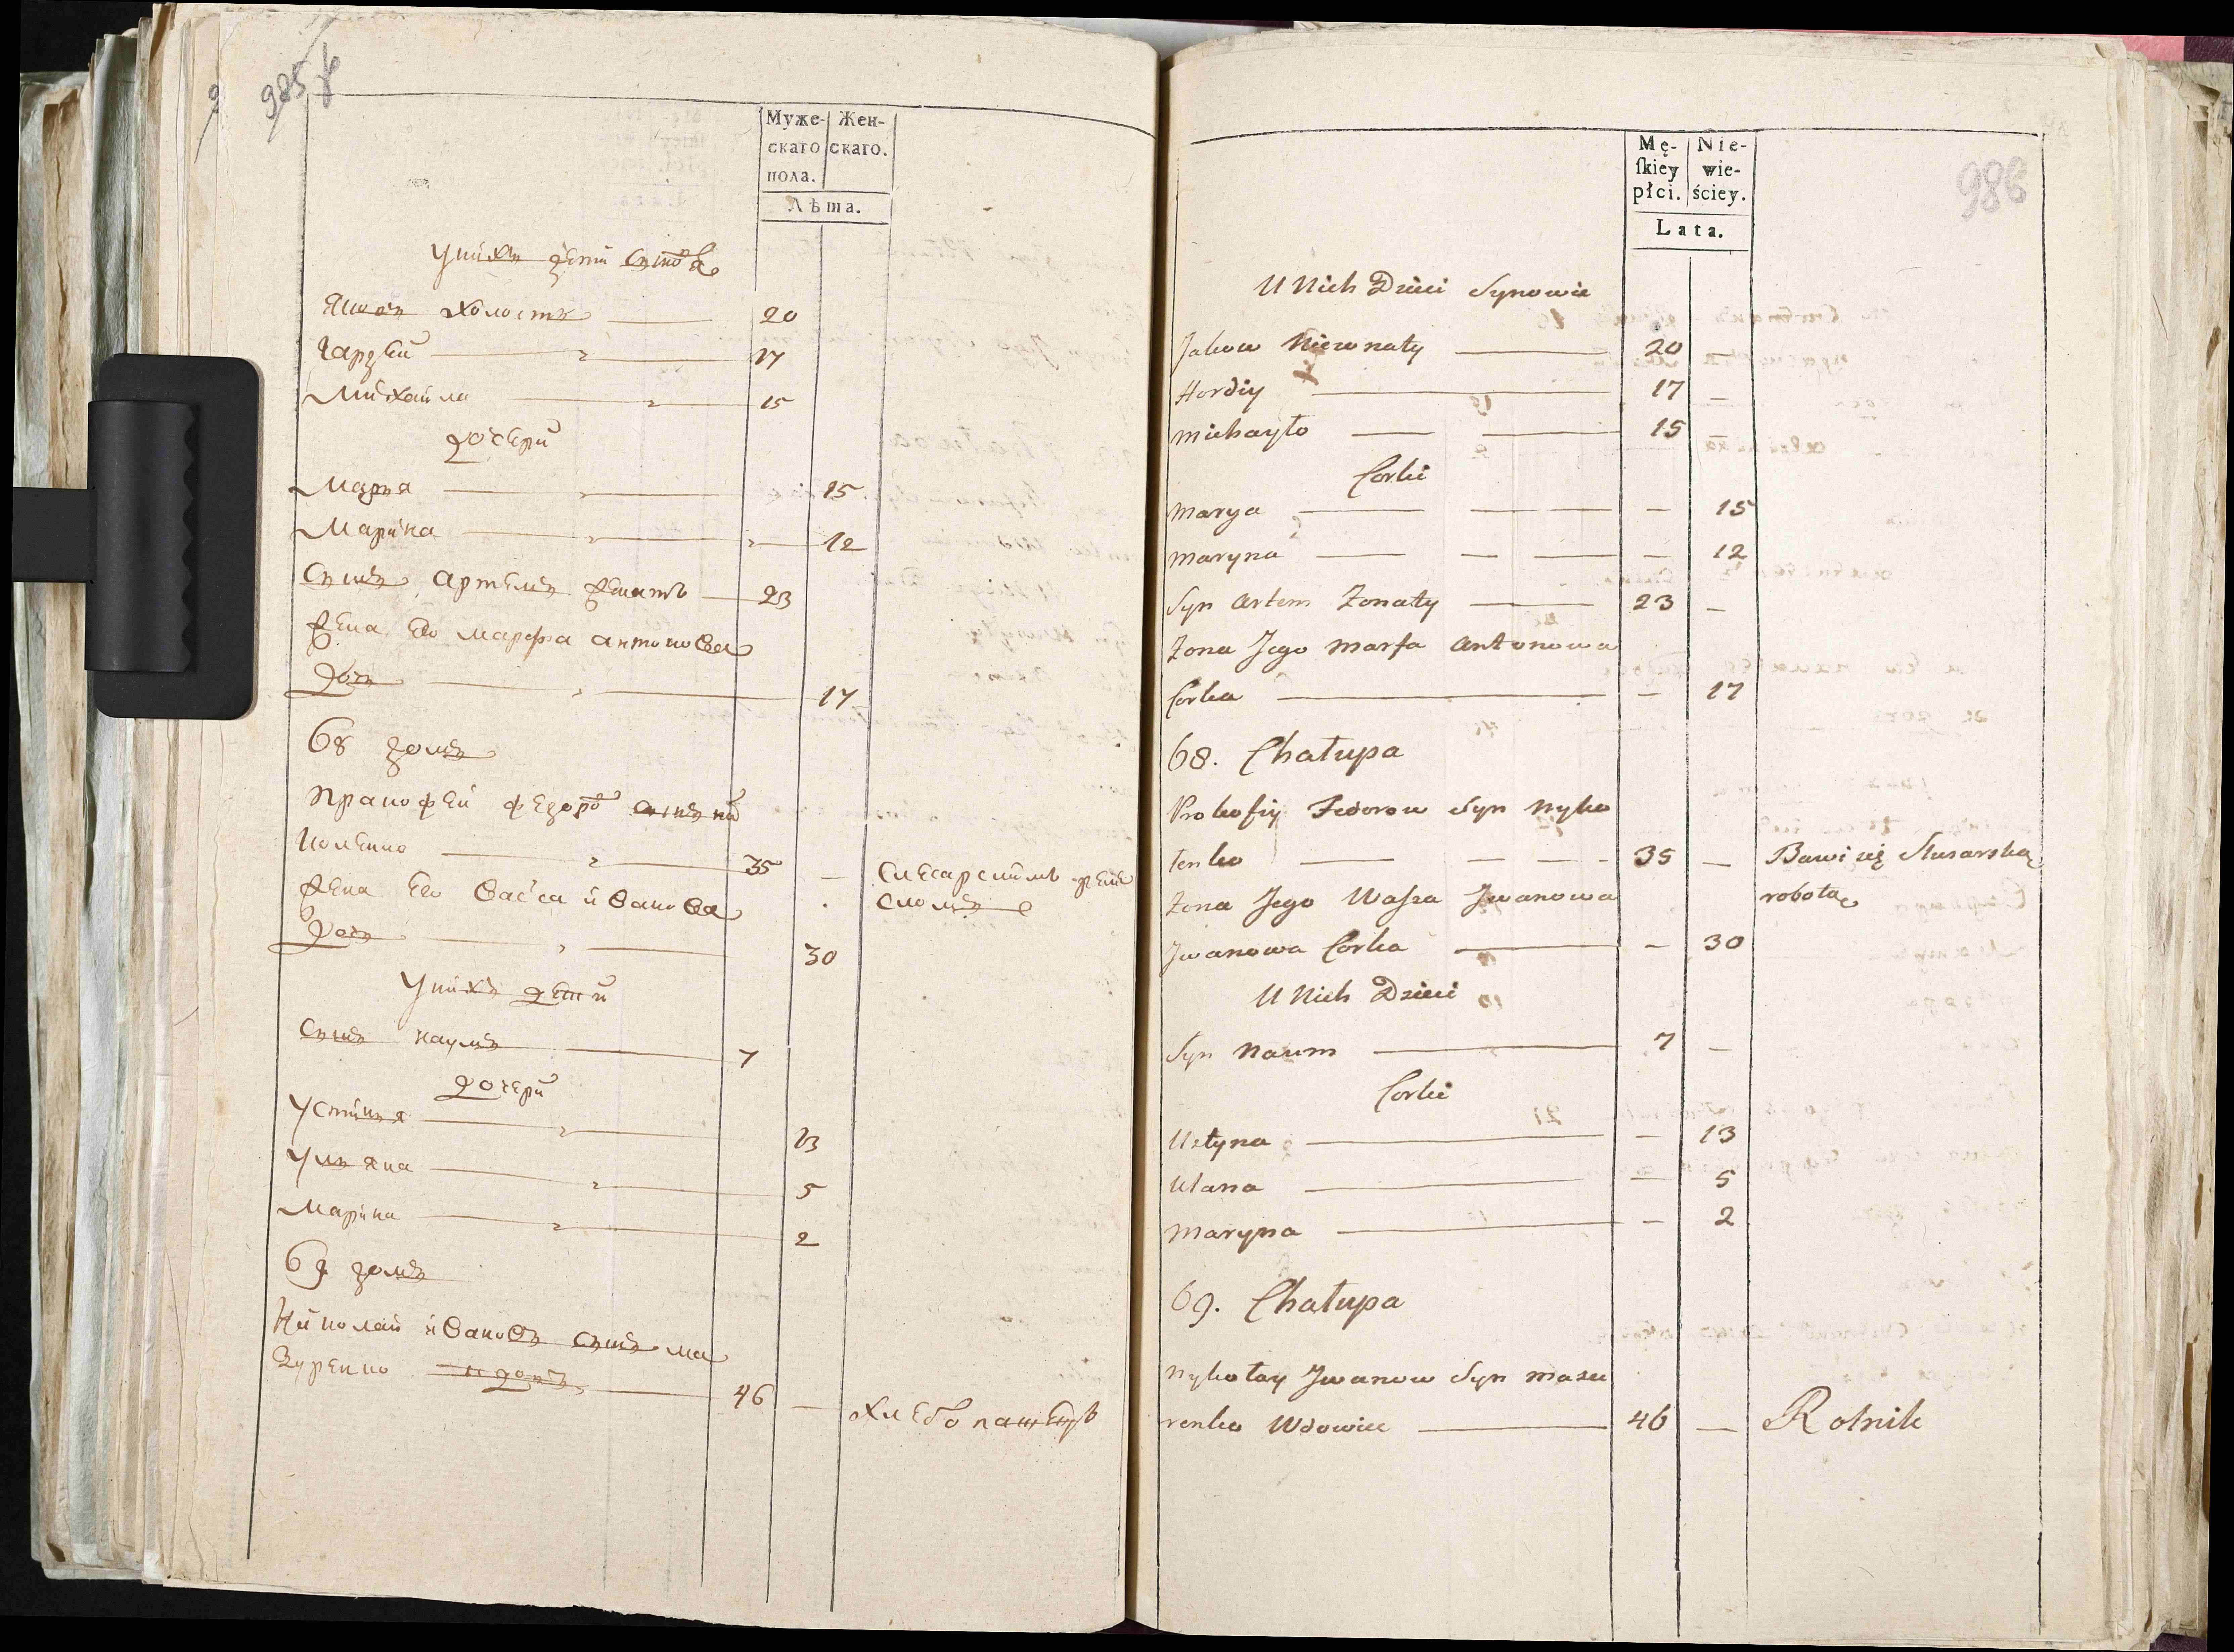 985
Муже-
скаго
пола.
Жен-
скаго.
Лѣта.
У нихъ дети синовя
Яковъ холостъ 20
Гардѣй 17
Михайла 15
дочери
Маря 15
Марина 12
Синъ артемъ женатъ 23
жена Его марфа антонова
дочь 17
68 домъ
Пракофей федоро синъ ни
коленко 35 — Слесарскимъ реме
сломъ
жена Его Васса иванова
дочь 30
У нихъ дети
Синъ наумъ 7
дочери
Устиня 13
Уляна 5
Марина 2
69 домъ
Николай ивановъ синъ ма
зуренко вдовъ 46 — хлебопашецъ
986
Mę-
ſkiey
płci.
Nie-
wie-
ściey.
Lata.
U Nich Dzieci Synowie
Jakow Niezonaty 20 —
Hordiy 17 —
Michayło 15 —
Corki
Marya — 15
Maryna — 12
Syn Artem Zonaty 23 —
Zona Jego Marfa Antonowa
Corka — 17
68. Chałupa
Prokofiy Fedorow Syn Nyko
łenko 35 — Bawi się Slusarską
robotą
Zona Jego Waſsa Jwanowa
Jwanowa Corka — 30
U Nich Dzieci
Syn Naum 7 —
Corki
Ustyna — 13
Ulana — 5
Maryna — 2
69. Chałupa
Nykołay Jwanow Syn Mazu
renko Wdowiec 46 — Rolnik